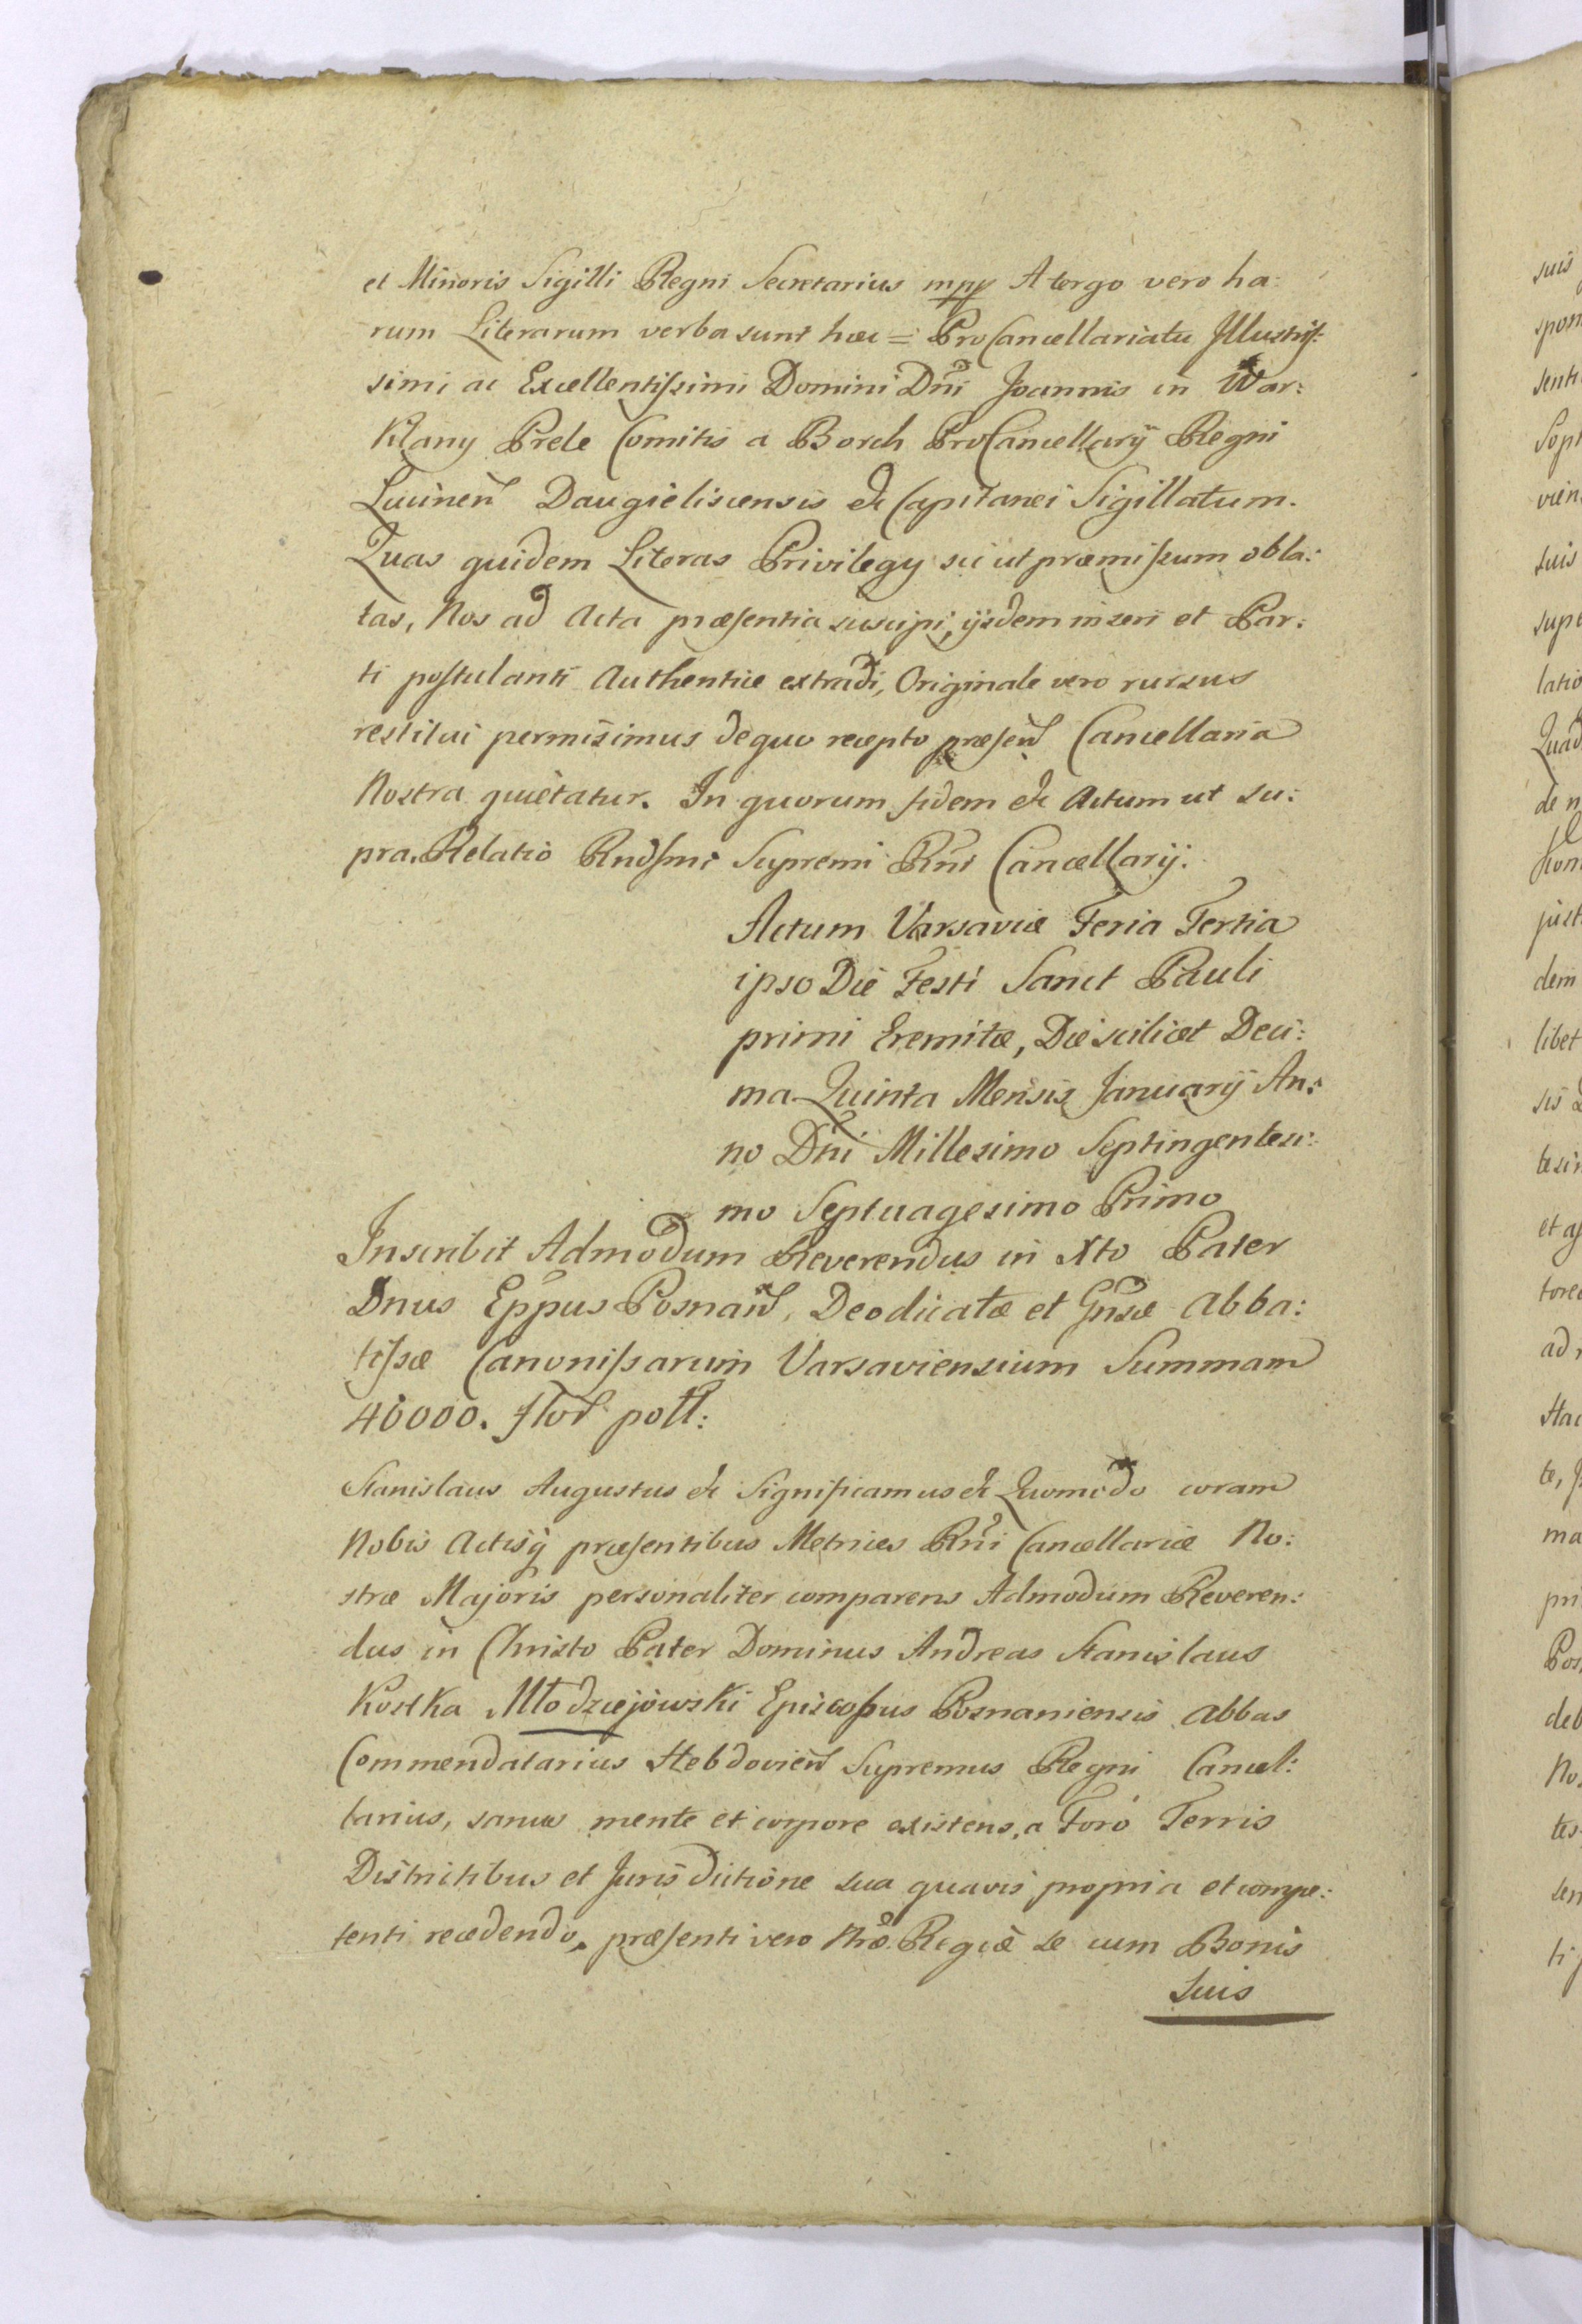 et Minoris Sigilli Regni Secretarius mpp A tergo vero ha:
rum Literarum verba sunt hæc = ProCancellariatu Jllustriſ:
simi ac Excellentiſsimi Domini Dñi Joannis in War:
Klany Prele Comitis a Borch ProCancellarij Regni
Lucineñ Daugieliscensis &c Capitanei Sigillatum.
Quas quidem Literas Privilegy sic ut præmiſsum obla:
tas, Nos ad Acta præſentia suscipi, ijsdem inseri et Par:
ti poſtulanti Authentice extradi, Originale vero rursus
restitui permisimus de quo recepto præſeñ Cancellaria
Nostra quietatur. In quorum fidem &c Actum ut su:
pra. Relatio Rndſmi Supremi Rñi Cancellarij.
Actum Varsaviæ Feria Tertia
ipso Die Festi Sanct Pauli
primi Eremitæ, Die scilicet Deci:
ma Quinta Mensis Januarij An:
no Dñi Millesimo Septingentesi:
mo Septuagesimo Primo
Inscribit Admodum Reverendus in Xto Pater
Dnus Eppus Posnañ, Deodicatæ et Gñsæ Abba:
tiſsæ Canoniſsarum Varsaviensium Summam
40000. flor poll:
Stanislaus Augustus &c Significamus &c Quomodo coram
Nobis Actisq præſentibus Metrices Rñi Cancellariæ No:
stræ Majoris personaliter comparens Admodum Reveren:
dus in Christo Pater Dominus Andreas Stanislaus
Kostka Młodziejowski Episcopus Posnaniensis Abbas
Commendatarius Hebdovieñ Supremus Regni Cancel:
larius, sanus mente et corpore existens, a Foro Terris
Districtibus et Jurisdictione sua quavis propria et compe:
tenti recedendo, præſenti vero Nræ Regiæ se cum Bonis
suis